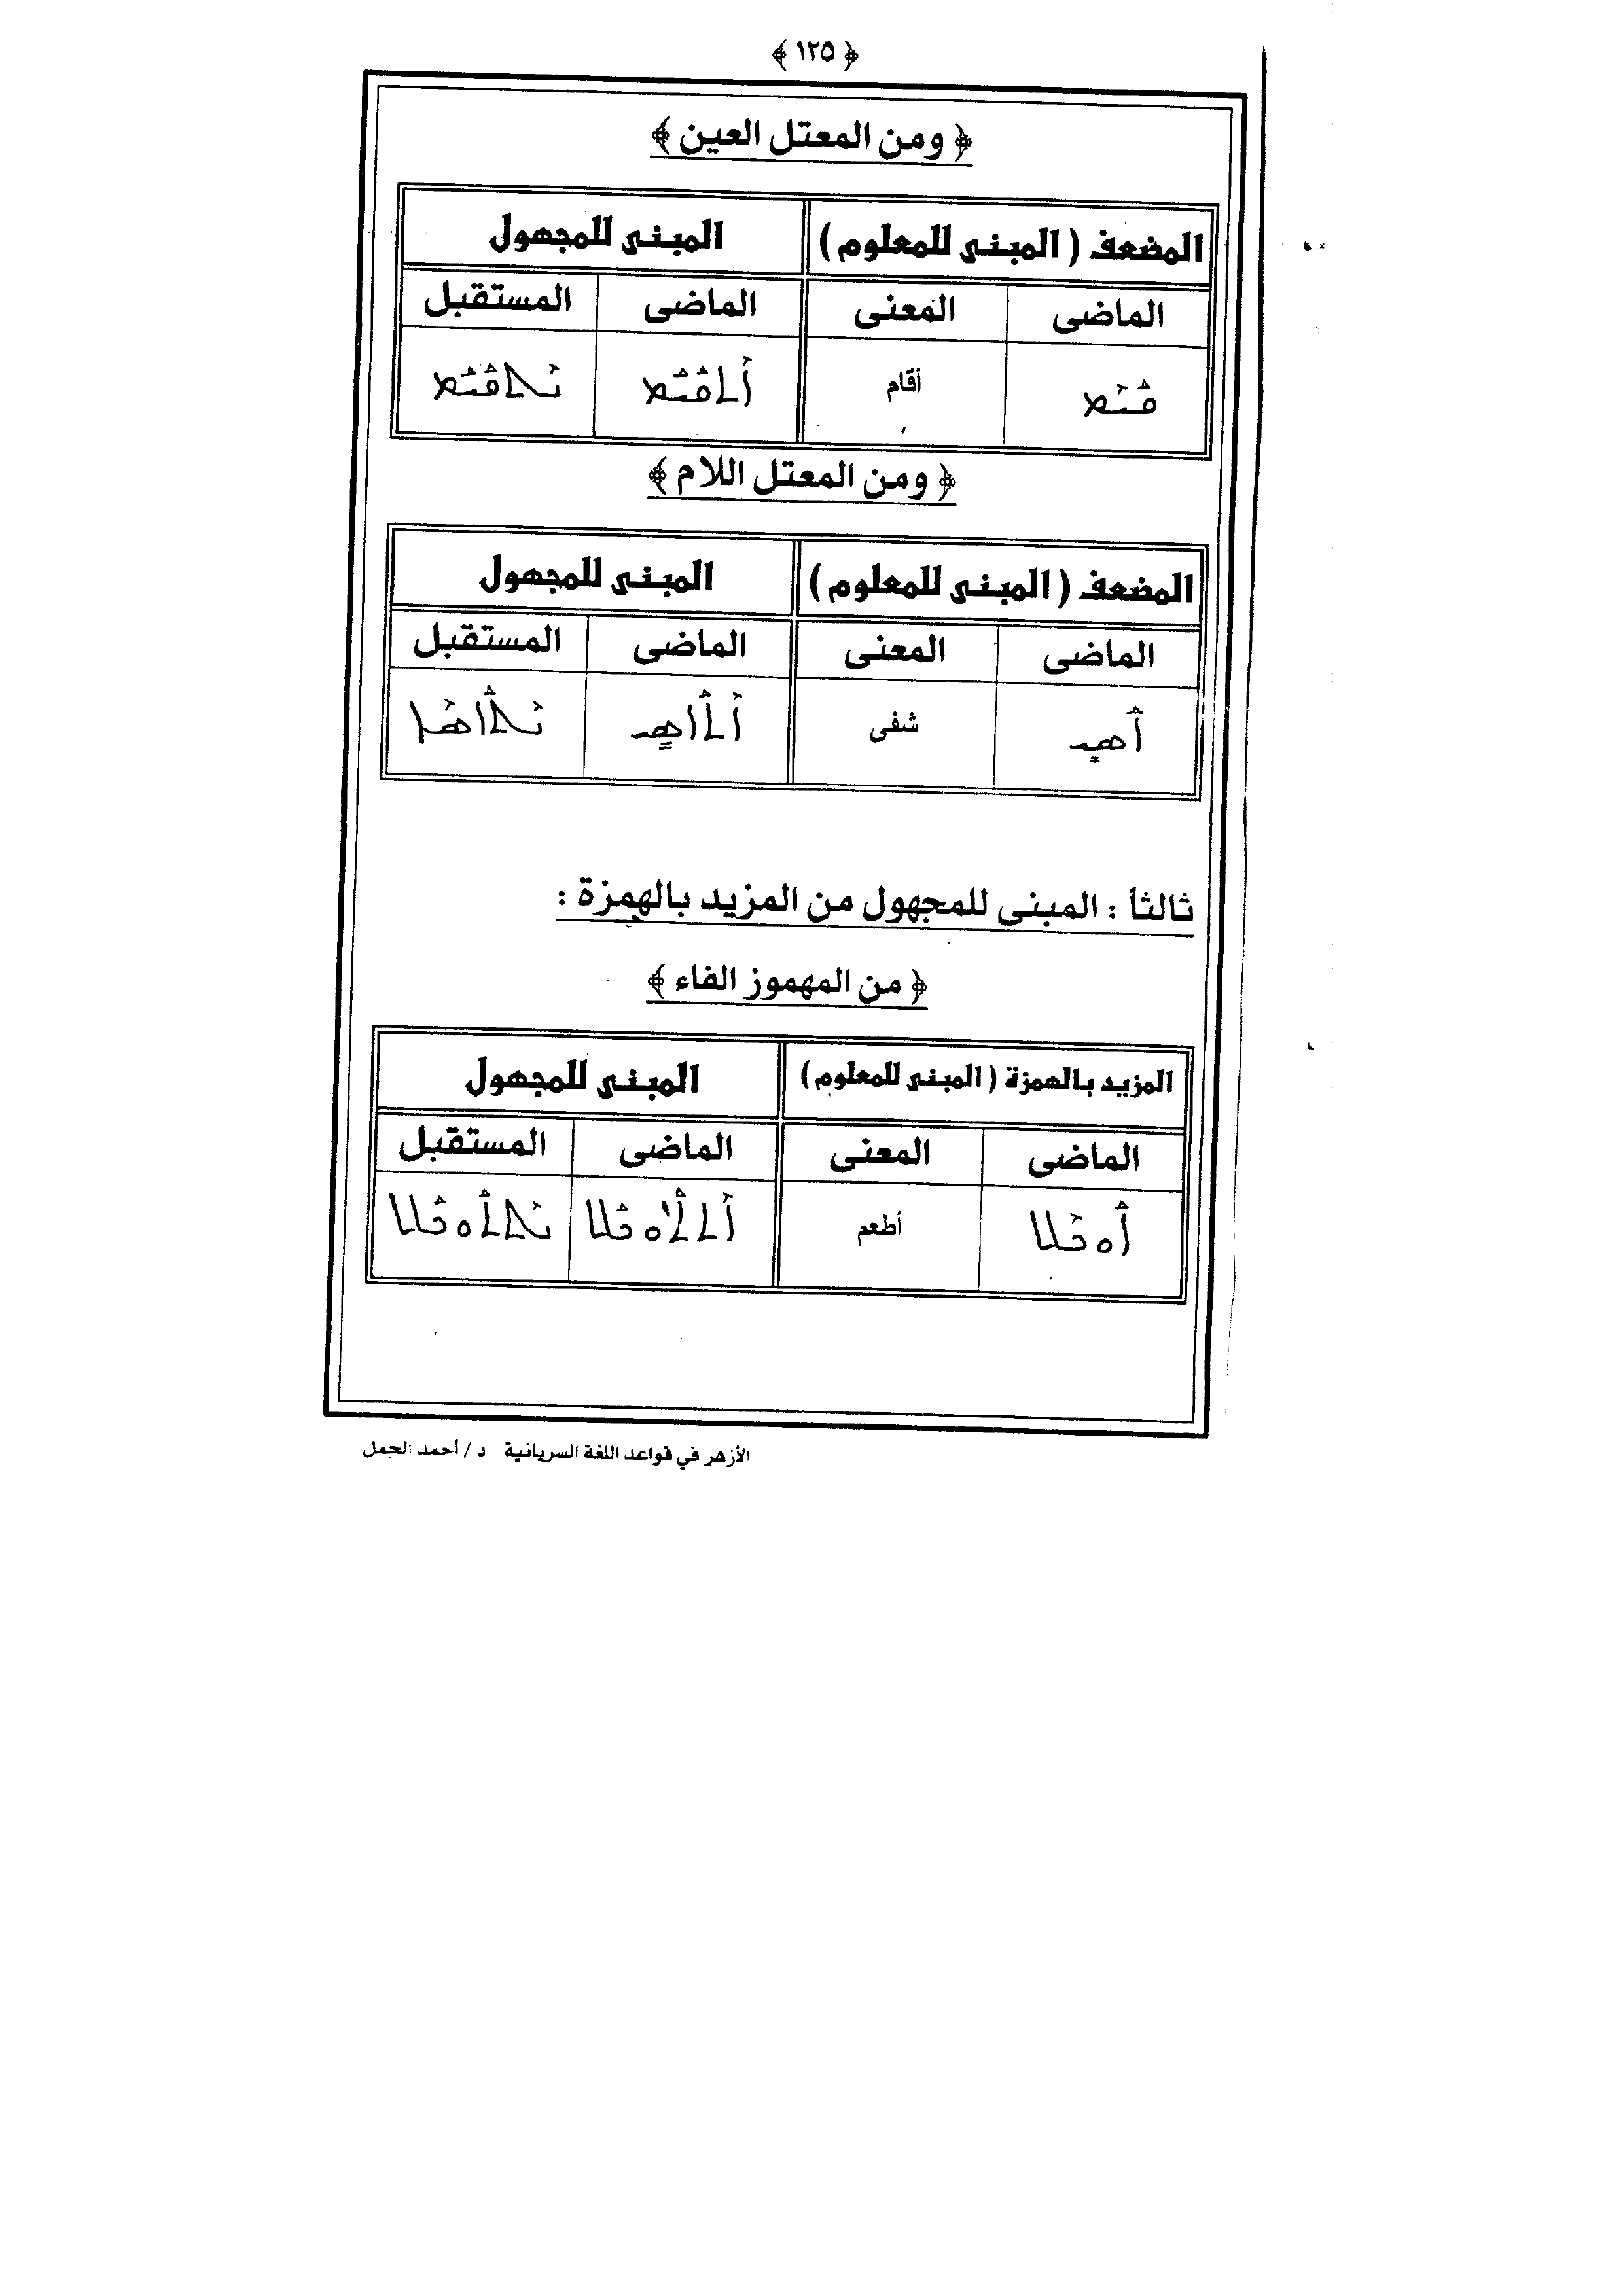 ﴿ ١٢٥ ﴾
﴿ ومن المعتل العين ﴾
المضعف ( المبنى للمعلوم ) المبنى للمجهول
الماضى المعنى الماضى المستقبل
ܩܰܝܶܡ أقام ܐܶܬܩܰܝܰܡ ܢܶܬܩܰܝܰܡ
﴿ ومن المعتل اللام ﴾
المضعف ( المبنى للمعلوم ) المبنى للمجهول
الماضى المعنى الماضى المستقبل
ܐܰܣܹܝ شفى ܐܶܬܐܰܣܹܝ ܢܶܬܐܰܣܶܐ
ثالثاً : المبنى للمجهول من المزيد بالهمزة :
﴿ من المهموز الفاء ﴾
المزيد بالهمزة ( المبنى للمعلوم ) المبنى للمجهول
الماضى المعنى الماضى المستقبل
ܐܰܘܟܶܠ أطعم ܐܶܬܬܰܘܟܰܠ ܢܶܬܬܰܘܟܰܠ
الأزهر في قواعد اللغة السريانية د / أحمد الجمل